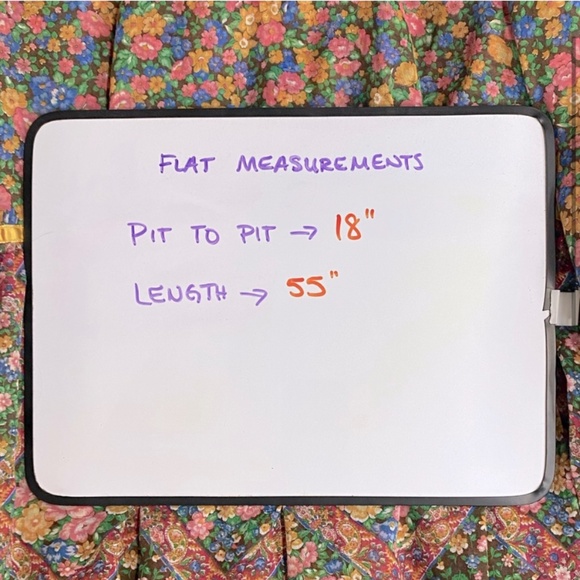 FLAT MEASUREMENTS
PIT TO PIT → 18"
LENGTH → 55"